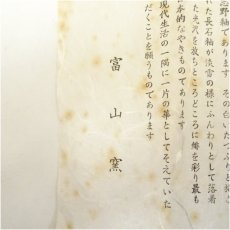 志野釉であります その白いたつぷりと
れた長石釉が淡雪の様にふんわりとして落着
た光沢を放ちところどころに緋を彩り最も
本的なやきものであります
現代生活の一隅に一片の華としてそえていた
だくことを願うものであります
富山窯